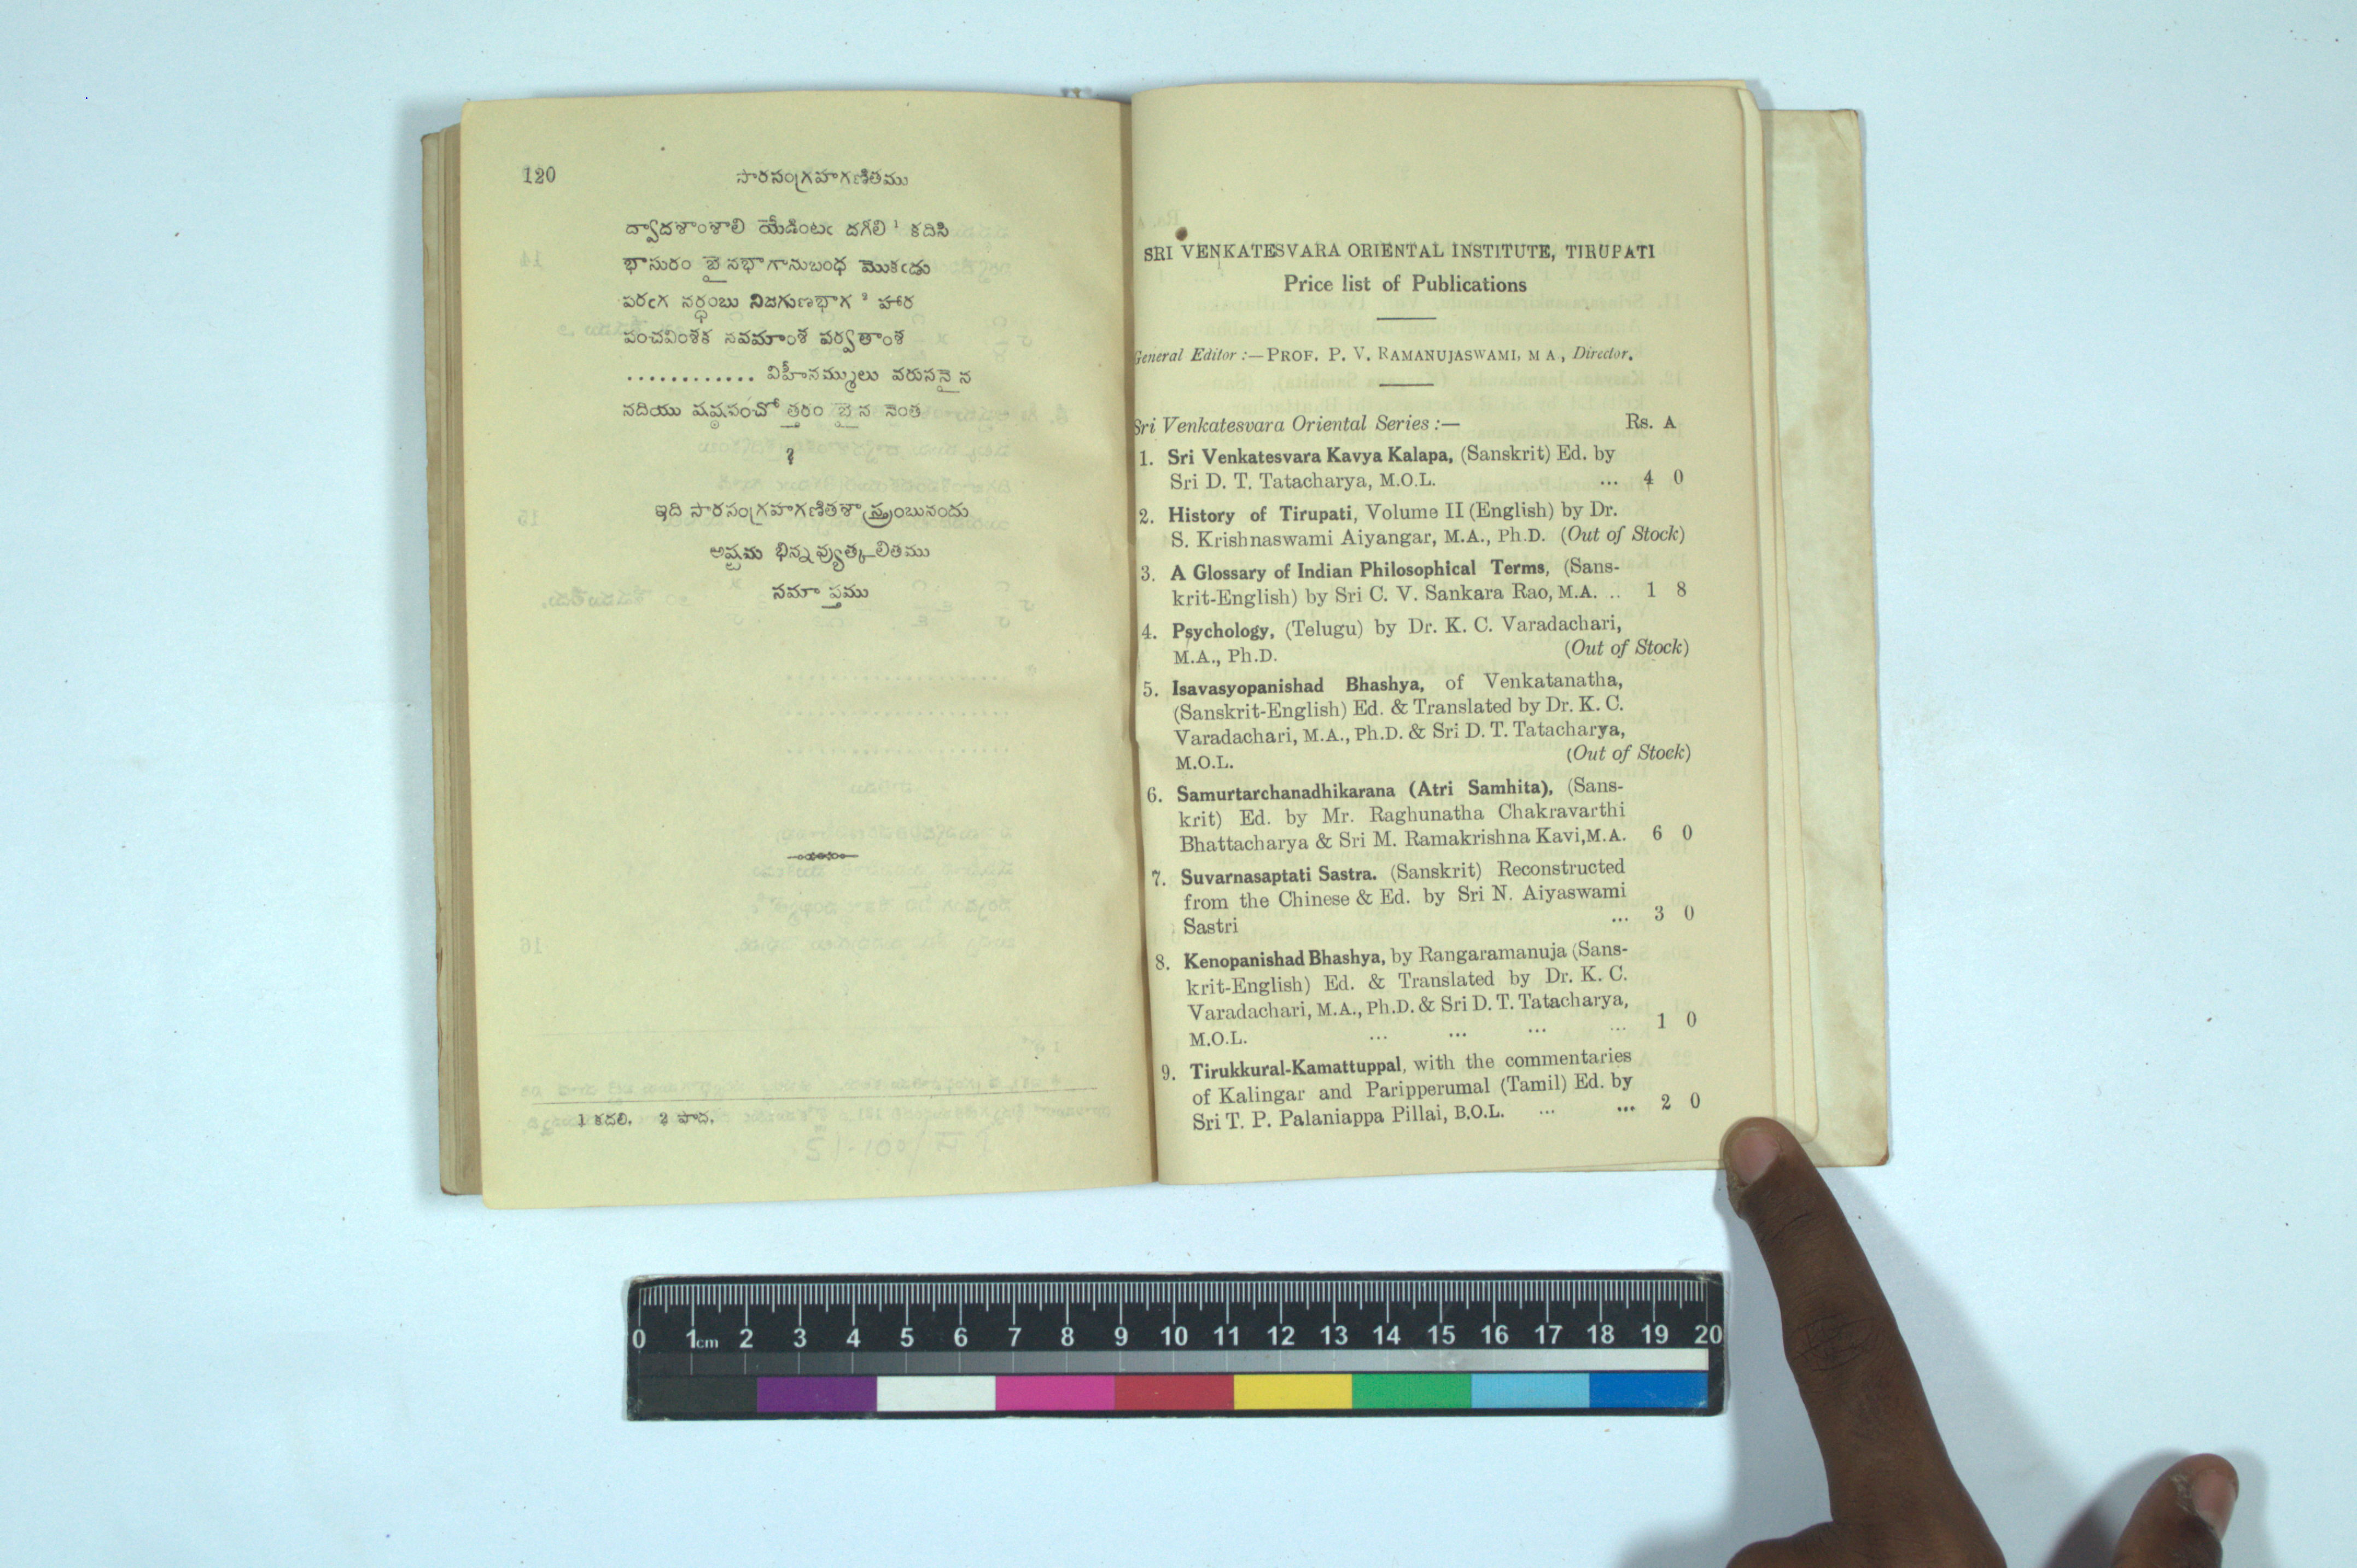 120
సారసంగ్రహగణితము
ద్వాదశాంశాలి యేడింటఁ దగిలి 1 కదిసి
భాసురం బైనభాగానుబంధ మొకఁడు
పరఁగ నర్ధంబు నిజగుణభాగ 2 హార
పంచవింశక నవమాంశ పర్వతాంశ
............ విహీనమ్ములు వరుసనైన
నదియు షష్ఠపంచోత్తరం బైన నెంత
?
ఇది సారసంగ్రహగణితశాస్త్రంబునందు
అష్టమ భిన్నవ్యుత్కలితము
సమాప్తము
1 కదలి. 2 పాద.
SRI VENKATESVARA ORIENTAL INSTITUTE, TIRUPATI
Price list of Publications
General Editor :—PROF. P. V. RAMANUJASWAMI, M A, Director.
Sri Venkatesvara Oriental Series :— Rs. A
1. Sri Venkatesvara Kavya Kalapa, (Sanskrit) Ed. by
Sri D. T. Tatacharya, M.O.L. ... 4 0
2. History of Tirupati, Volume II (English) by Dr.
S. Krishnaswami Aiyangar, M.A., Ph.D. (Out of Stock)
3. A Glossary of Indian Philosophical Terms, (Sans-
krit-English) by Sri C. V. Sankara Rao, M.A. .. 1 8
4. Psychology, (Telugu) by Dr. K. C. Varadachari,
M.A., Ph.D. (Out of Stock)
5. Isavasyopanishad Bhashya, of Venkatanatha,
(Sanskrit-English) Ed. & Translated by Dr. K. C.
Varadachari, M.A., Ph.D. & Sri D. T. Tatacharya,
M.O.L. (Out of Stock)
6. Samurtarchanadhikarana (Atri Samhita), (Sans-
krit) Ed. by Mr. Raghunatha Chakravarthi
Bhattacharya & Sri M. Ramakrishna Kavi, M.A. 6 0
7. Suvarnasaptati Sastra. (Sanskrit) Reconstructed
from the Chinese & Ed. by Sri N. Aiyaswami
Sastri ... 3 0
8. Kenopanishad Bhashya, by Rangaramanuja (Sans-
krit-English) Ed. & Translated by Dr. K. C.
Varadachari, M.A., Ph.D. & Sri D. T. Tatacharya,
M.O.L. ... ... ... ... 1 0
9. Tirukkural-Kamattuppal, with the commentaries
of Kalingar and Paripperumal (Tamil) Ed. by
Sri T. P. Palaniappa Pillai, B.O.L. ... ... 2 0
0 1cm 2 3 4 5 6 7 8 9 10 11 12 13 14 15 16 17 18 19 20